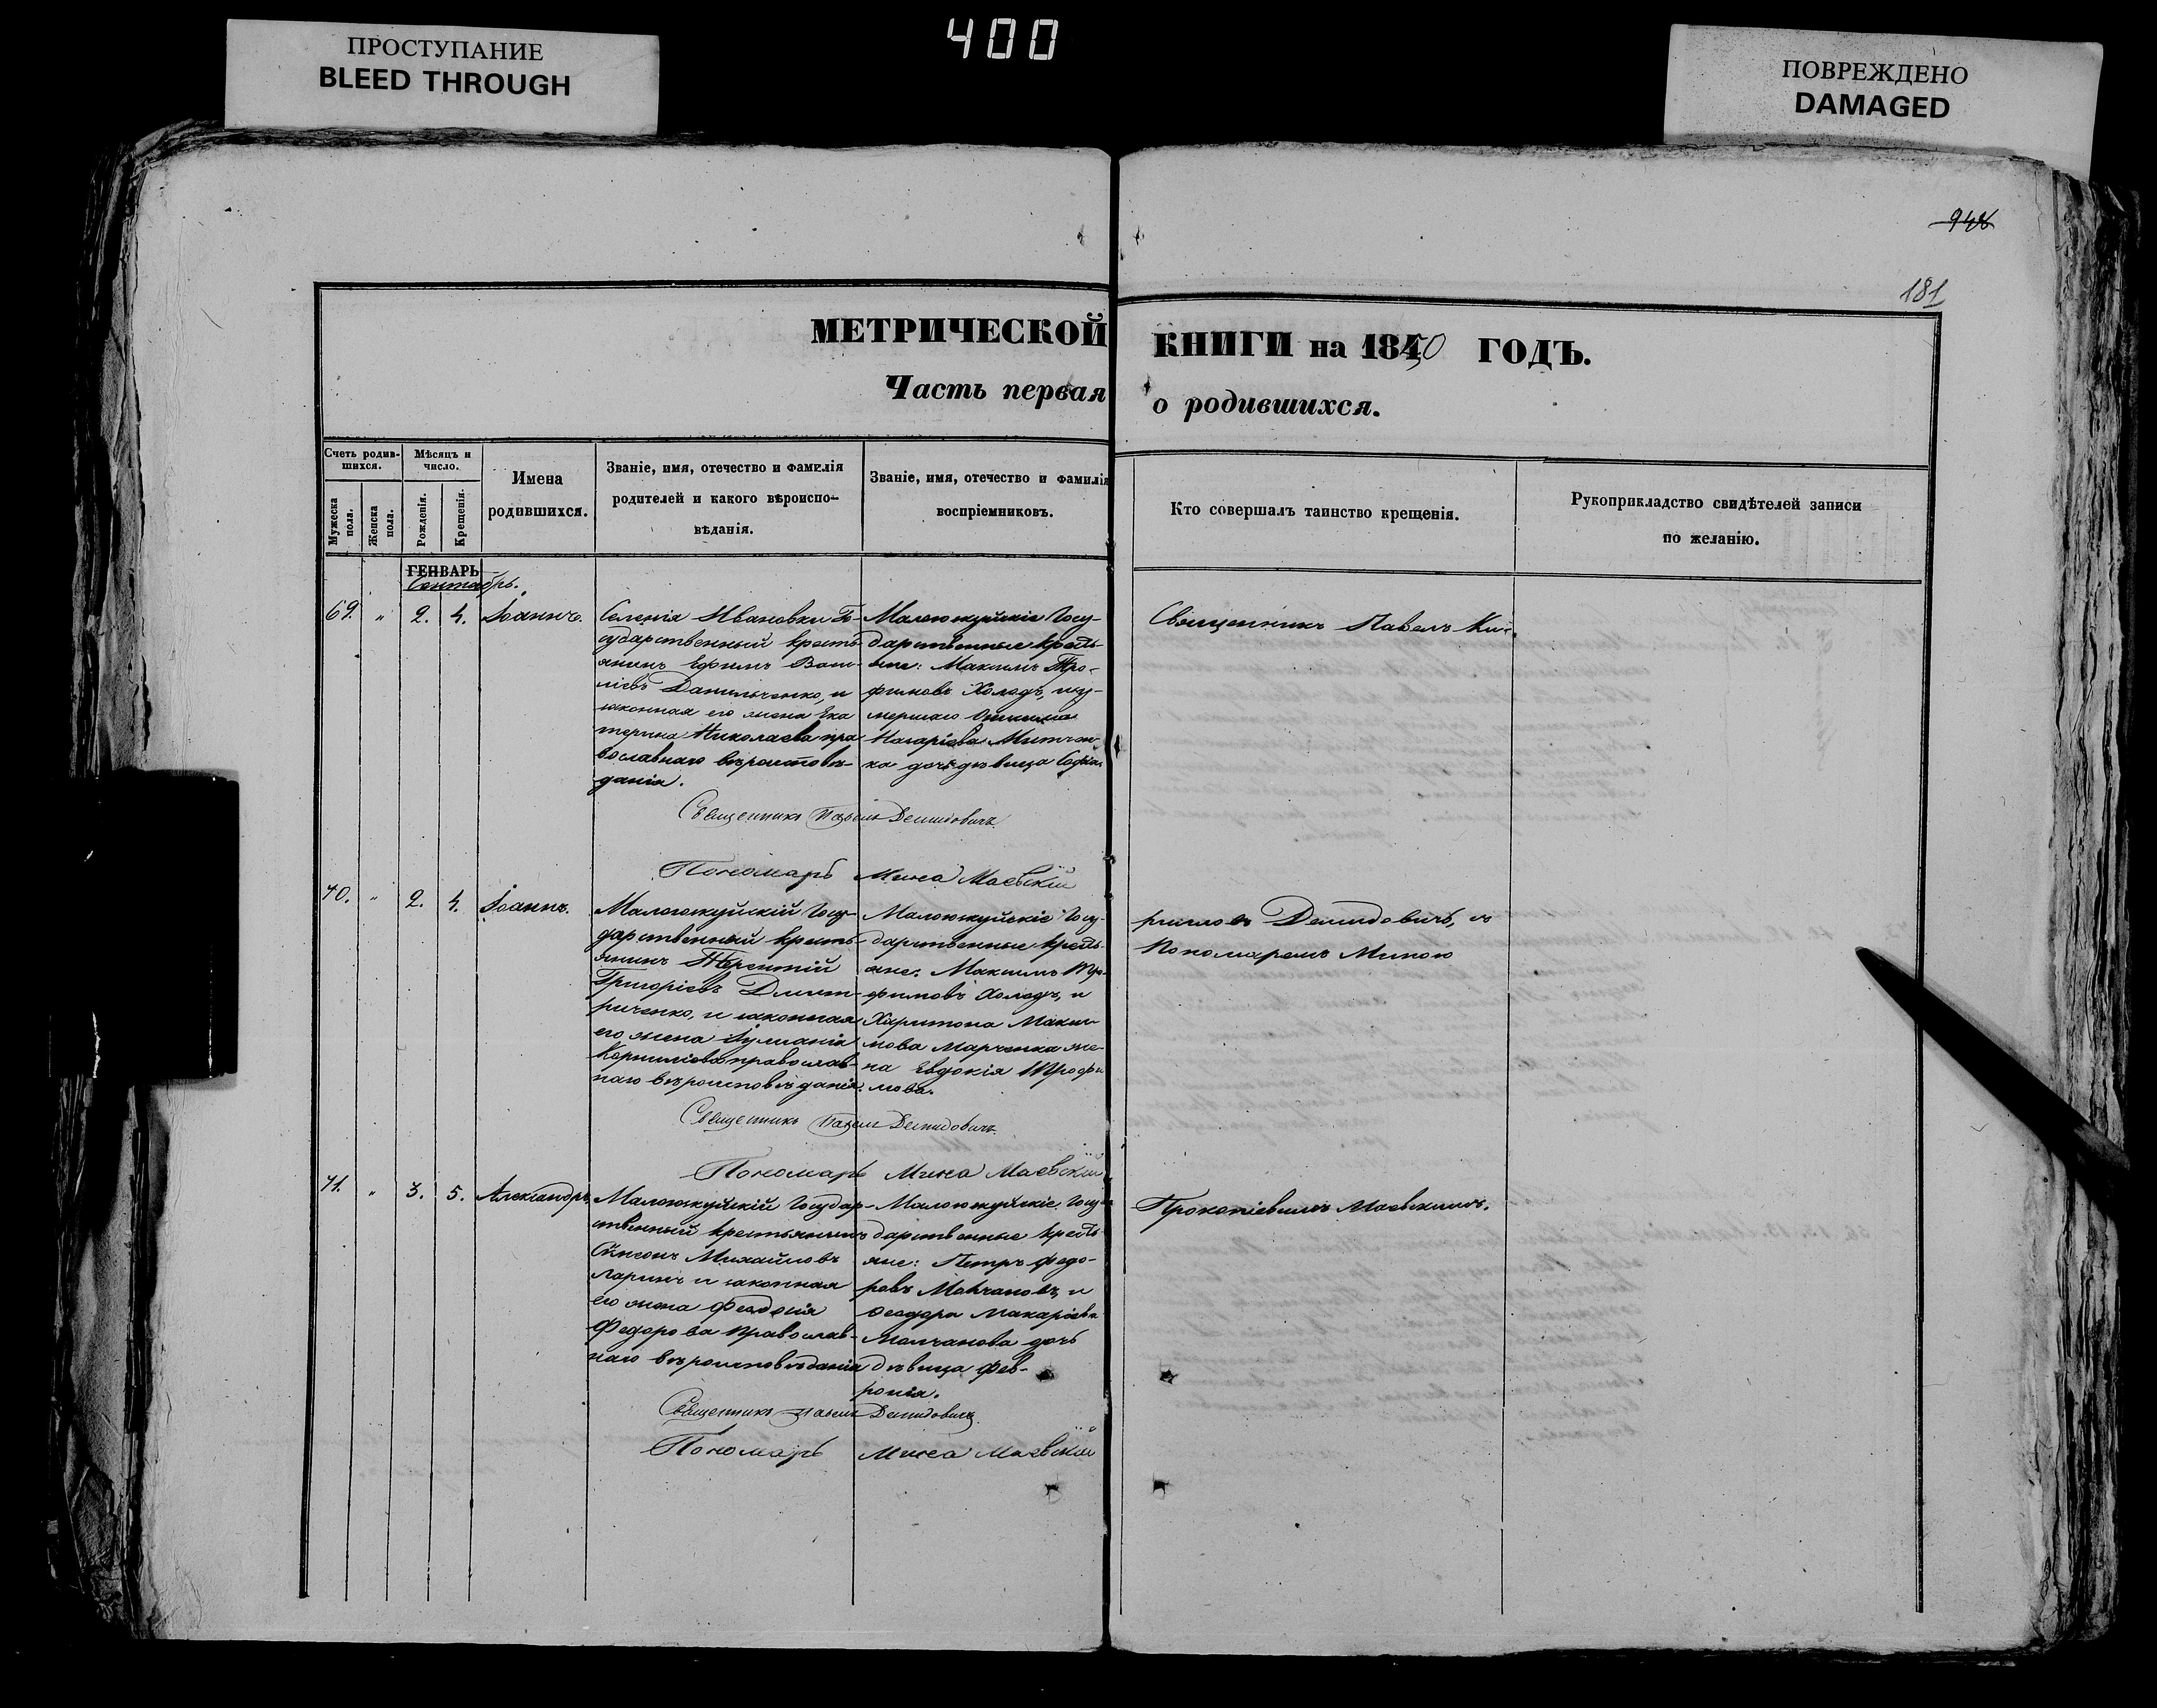 ПРОСТУПАНИЕ
BLEED THROUGH
400
ПОВРЕЖДЕНО
DAMAGED
181
МЕТРИЧЕСКОЙ КНИГИ на 1850 ГОДЪ.
Часть первая о родившихся.
Счетъ родив-
шихся.
Мужеска пола.
Женска пола.
Мѣсяцъ и
число.
Рожденія.
Крещенія.
Имена
родившихся.
Званіе, имя, отечество и фамилія
родителей и какого вѣроиспо-
вѣданія.
Званіе, имя, отечество и фамилія
воспріемниковъ.
Кто совершалъ таинство крещенія.
Рукоприкладство свидѣтелей записи
по желанію.
ГЕНВАРЬ
Сентябрь.
69. " 2. 4. Іоаннъ.
Селенія Ивановки Го-
сударственный кресть-
янинъ Ефимъ
Данильченко, и
законная его жена Ека
терина Николаева пра
вославнаго вѣроисповѣ-
данія.
Малоюжуйскіе Госу-
дарственные кресть-
яне: Максимъ Тро-
фимовъ Холодъ, и у-
мершаго
дочь дѣвица Софія
Священникъ Павелъ Ки-
Священникъ Павелъ Демидовичъ
Пономарь Мина Маевскій
70. " 2. 4. Іоаннъ.
Малоюжуйскій Госу-
дарственный кресть-
янинъ Терентій
Григорьевъ Дмит-
риченко, и законная
его жена Іуліанія
Корниліева православ-
наго вѣроисповѣданія.
Малоюжуйскіе Госу-
дарственные кресть-
яне: Максимъ Тро-
фимовъ Холодъ, и
Харитона Макси
мова Марченка же-
на Евдокія Трофи
мова.
рилловъ Демидовичъ, съ
Пономаремъ Миною
Священникъ Павелъ Демидовичъ
Пономарь Мина Маевскій
71. " 3. 5. Александръ
Малоюжуйскій Государ-
ственный крестьянинъ
Сѵмеонъ Михайловъ
Ларинъ и законная
его жена Феодосія
Федорова православ-
наго вѣроисповѣданія
Малоюжуйскіе Госу-
дарственные кресть
яне: Петръ Федо-
ровъ Молчановъ, и
Феодора Макаріева
Молчанова дочь
дѣвица Фев-
ронія.
Прокопіевымъ Маевскимъ.
Священникъ Павелъ Демидовичъ
Пономарь Мина Маевскій